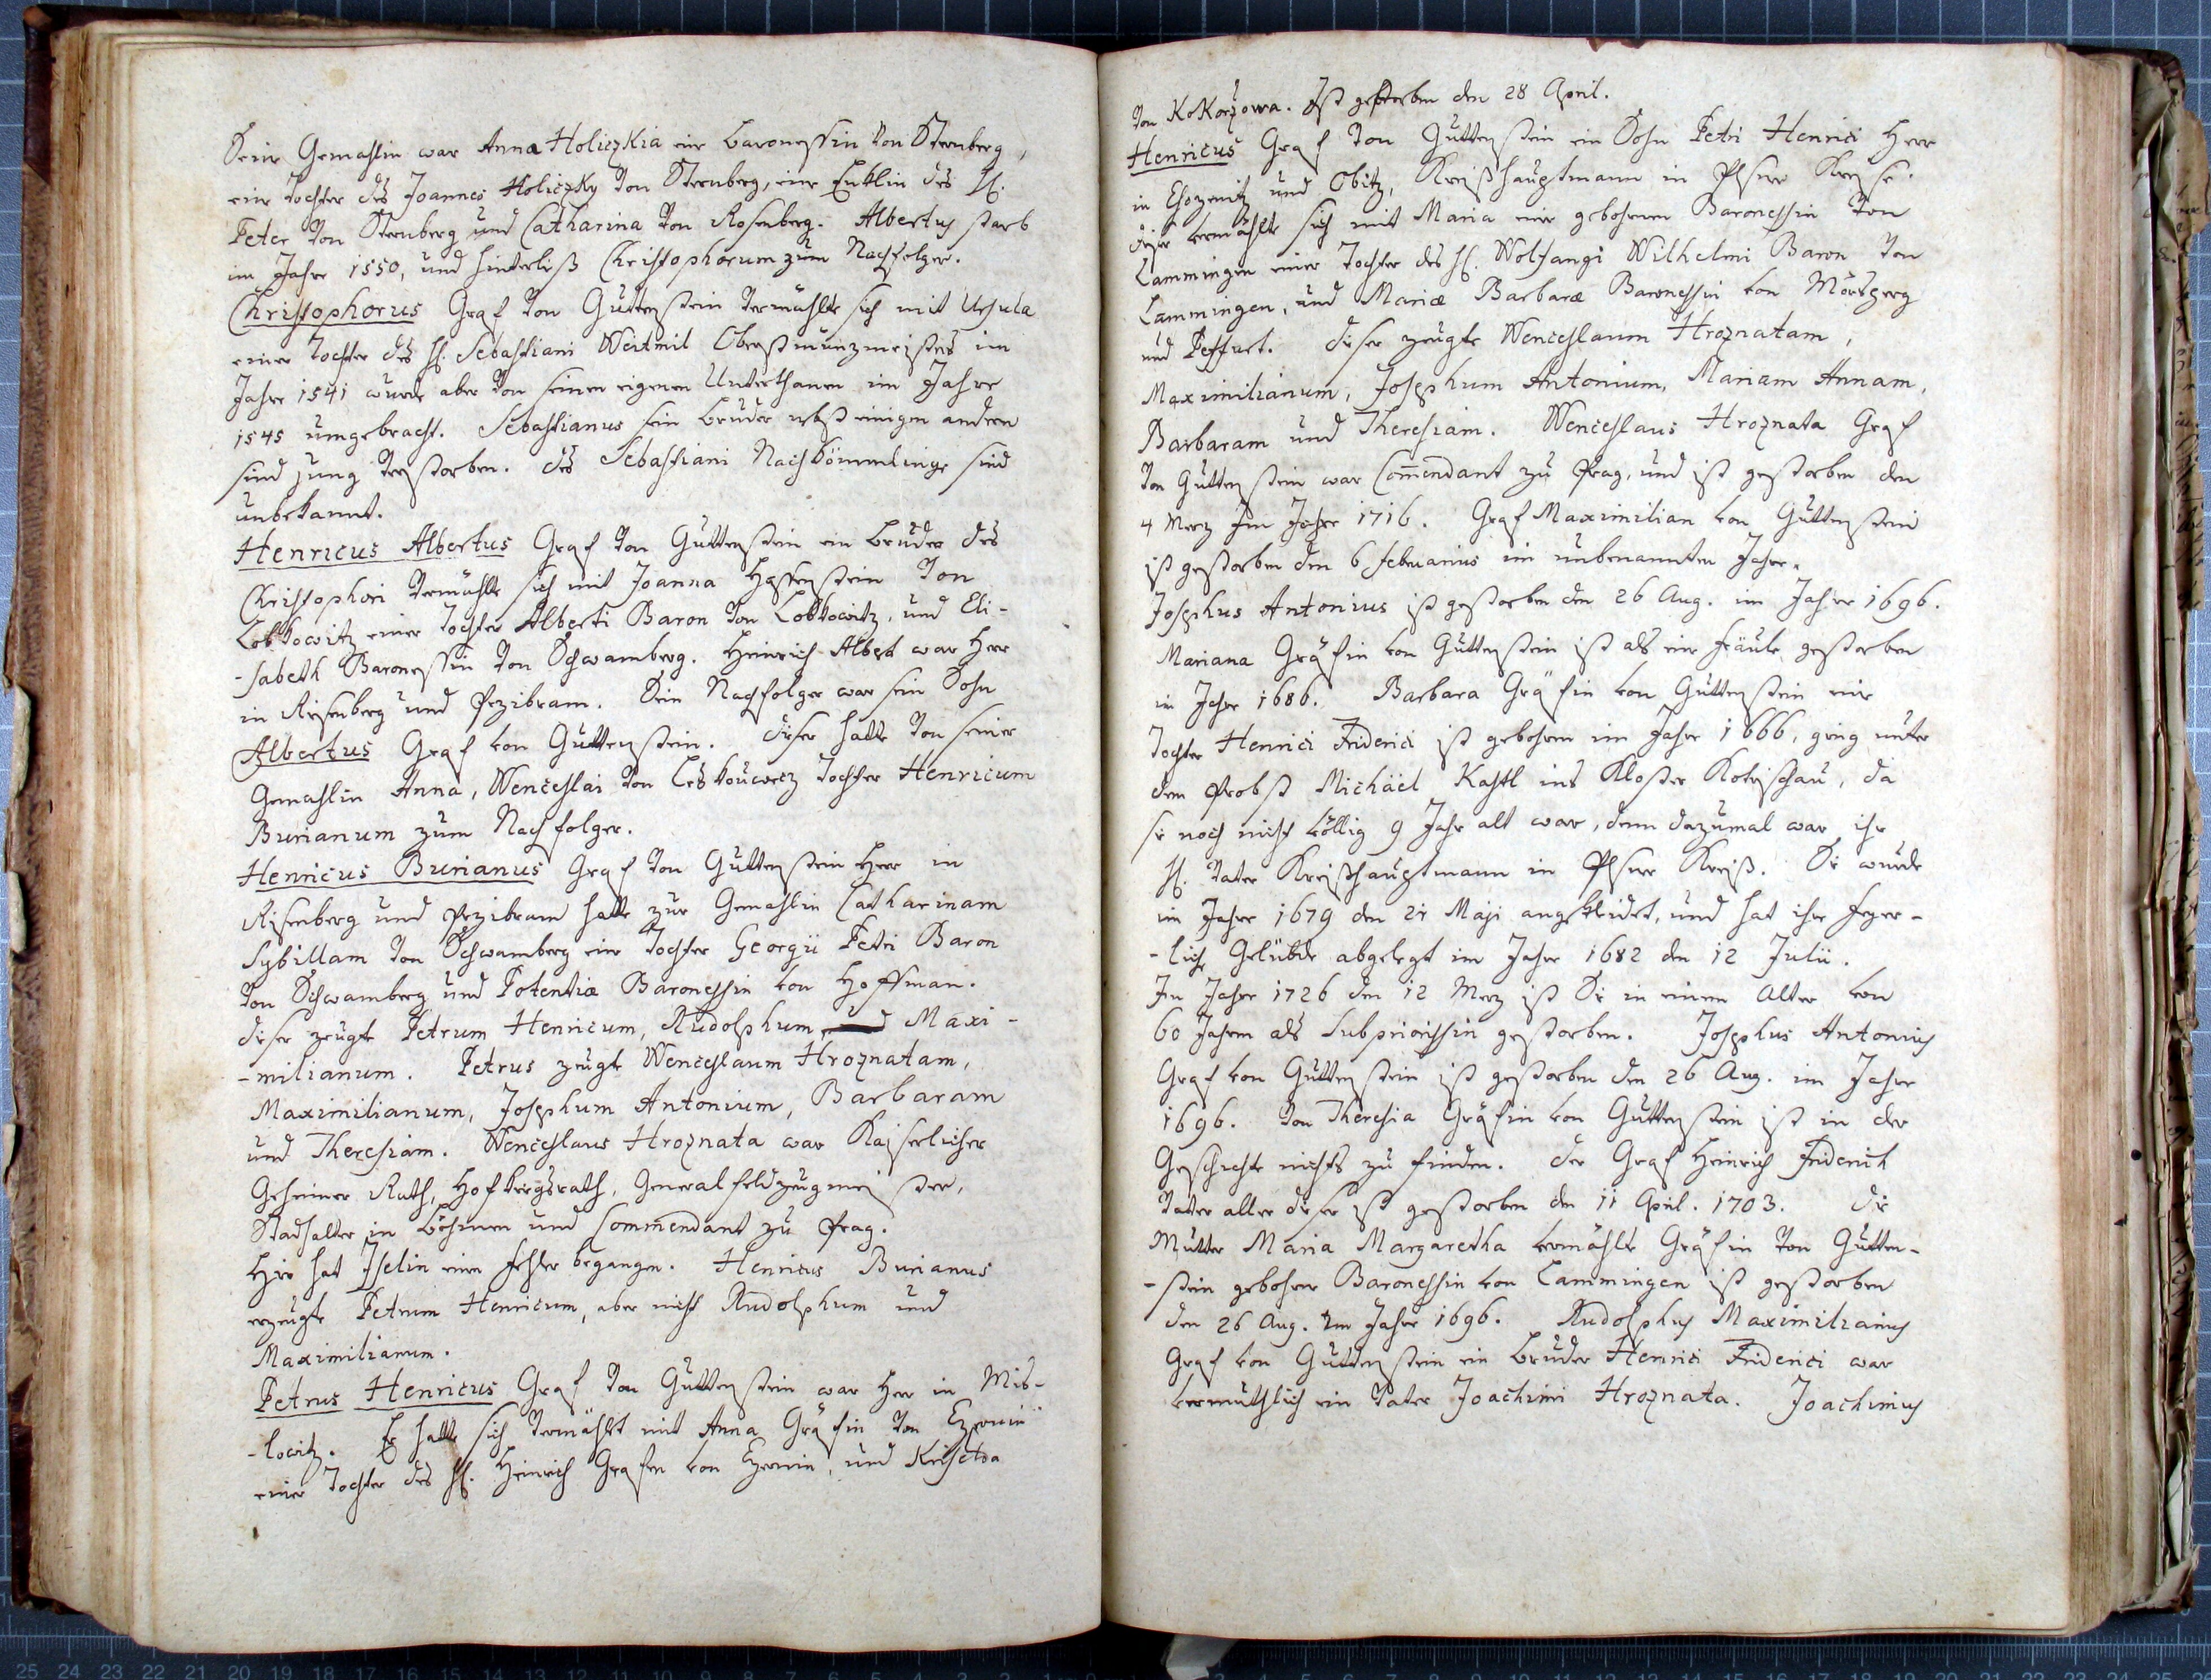 Seine Gemahlin war Anna Holiczkia eine Baronessin von Sternberg,
eine Tochter des Joannes Holiczky von Sternberg, eine Enklin des H.
Peter von Sternberg und Catharina von Rosenberg. Albertus starb
im Jahre 1550, und hinterließ Christophorum zum Nachfolger.
Christophorus Graf von Guttenstein vermählte sich mit Ursula
einer Tochter des H. Sebastiani Weitmil Oberstmünzmeisters im
Jahre 1541 wurde aber von seinen eigenen Unterthanen im Jahre
1545 umgebracht. Sebastianus sein Bruder nebst einigen andern
sind jung verstorben. des Sebastiani Nachkömmlinge sind
unbekannt.
Henricus Albertus Graf von Guttenstein ein Bruder des
Christophori vermählte sich mit Joanna Hassenstein von
Lobkowitz einer Tochter Alberti Baron von Lobkowitz, und Eli-
-sabeth Baronessin von Schwamberg. Heinrich Albert war Herr
in Risenberg und Przibram. Sein Nachfolger war sein Sohn
Albertus Graf von Guttenstein. dieser hatte von seiner
Gemahlin Anna, Wenceslai von Leskouwecz Tochter Henricum
Burianum zum Nachfolger.
Henricus Burianus Graf von Guttenstein Herr in
Risenberg und Przibram hatte zur Gemahlin Catharinam
Sybillam von Schwamberg eine Tochter Georgii Petri Baron
von Schwamberg und Potentiæ Baronessin von Hoffman.
dieser zeugte Petrum Henricum, Rudolphum und Maxi-
-milianum. Petrus zeugte Wenceslaum Hroznatam,
Maximilianum, Josephum Antonium, Barbaram
und Theresiam. Wenceslaus Hroznata war Kaiserlicher
Geheimer Rath, Hofkriegsrath, Generalfeldzeugmeister,
Stadhalter in Böhmen und Commendant zu Prag.
Hier hat Iselin einen Fehler begangen. Henricus Burianus
erzeugte Petrum Henricum, aber nicht Rudolphum und
Maximilianum.
Petrus Henricus Graf von Guttenstein war Herr in Mis-
-lowitz. Er hatte sich vermählt mit Anna Gräfin von Czernin
einer Tochter des H. Heinrich Grafen von Czernin, und
von Kokorzowa. Ist gestorben den 28 April.
Henricus Graf von Guttenstein ein Sohn Petri Henrici Herr
in Chozenitz und Obitz, Kreißhauptmann in Plsner Kreise.
dieser vermählte sich mit Maria einer gebohrnen Baronessin von
Lammingen einer Tochter des H. Wolfangi Wilhelmi Baron von
Lammingen, und Mariæ Barbaræ Baronessin von
und Peffurt. dieser zeugte Wenceslaum Hroznatam,
Maximilianum, Josephum Antonium, Mariam Annam,
Barbaram und Theresiam. Wenceslaus Hroznata Graf
von Guttenstein war Commendant zu Prag, und ist gestorben den
4 Merz im Jahre 1716. Graf Maximilian von Guttenstein
ist gestorben den 6 Februarius im unbenannten Jahre.
Josephus Antonius ist gestorben den 26 Aug. im Jahre 1696.
Mariana Gräfin von Guttenstein ist als eine Fräule gestorben
im Jahre 1686. Barbara Gräfin von Guttenstein eine
Tochter Henrici Friderici ist gebohren im Jahre 1666, ging unter
dem Probst Michäel Kastl ins Kloster Kotieschau, da
sie noch nicht völlig 9 Jahr alt war, denn dazumal war ihr
H. Vater Kreißhauptmann in Plsner Kreiß. Sie wurde
im Jahre 1679 den 21 Maji angekleidet, und hat ihre feyer-
-liche Gelübde abgelegt im Jahre 1682 den 12 Julii.
Im Jahre 1726 den 12 Merz ist Sie in einem Alter von
60 Jahren als Subpriorissin gestorben. Josephus Antonius
Graf von Guttenstein ist gestorben den 26 Aug. im Jahre
1696. Von Theresia Gräfin von Guttenstein ist in der
Geschichte nichts zu finden. der Graf Heinrich Friderich
Vater aller dieser ist gestorben den 11 April. 1703. die
Mutter Maria Margaretha vermählte Gräfin von Gutten-
-stein gebohrne Baronessin von Lammingen ist gestorben
den 26 Aug. im Jahre 1696. Rudolphus Maximilianus
Graf von Guttenstein ein Bruder Henrici Friderici war
vermuthlich ein Vater Joachimi Hroznata. Joachimus